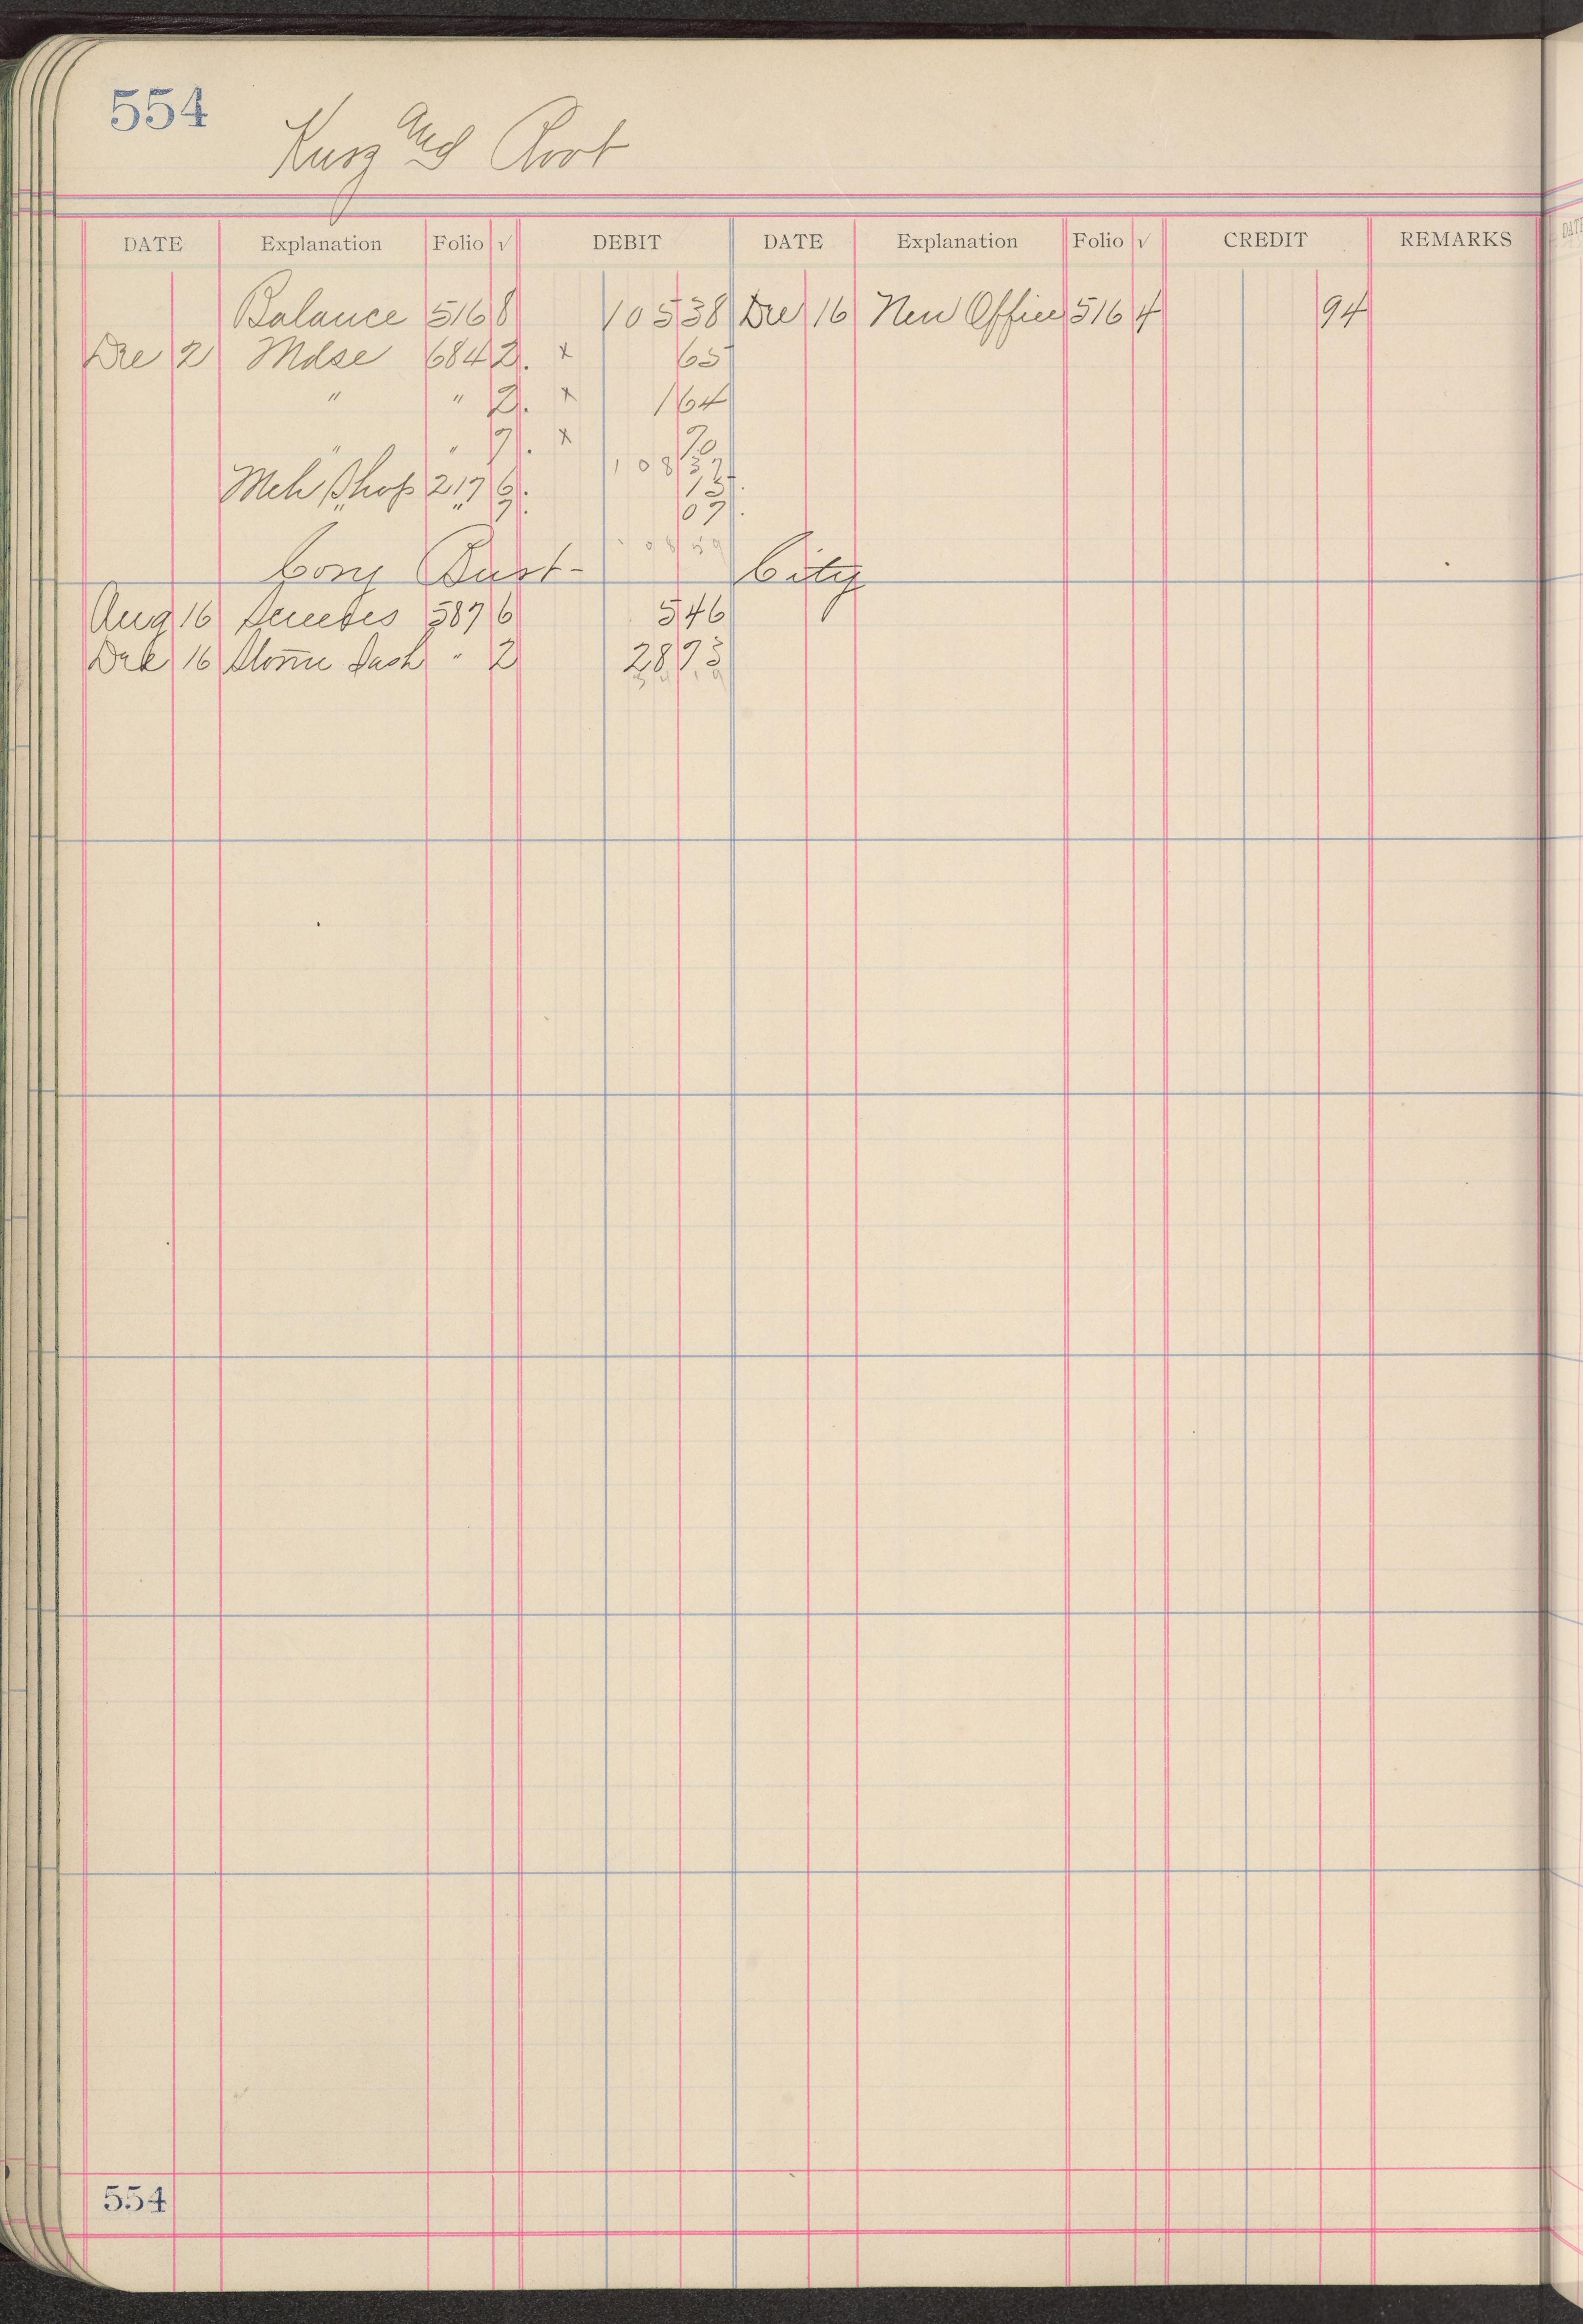 554
Kurz and Root
DATE Explanation Folio √ DEBIT DATE Explanation Folio √ CREDIT REMARKS
Balance 516 8 105 38 Dec 16 New Office 516 4 94
Dec 2 Mdse 684 2. x 65
" " 2. x 1 64
" " 7. x 70
108 37
Mch Shop 217 6. 15.
" " 7. 07.
108 59
Cory Bust- City
Aug 16 587 6 5 46
Dec 16 Storm Sash " 2 28 73
34 19
554